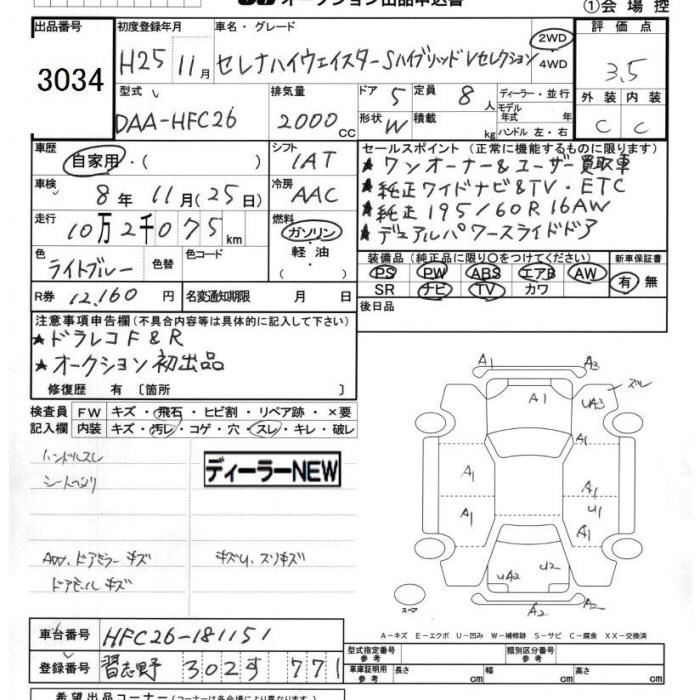 オークション出品申込書
①会場控
出品番号
3034
初度登録年月
H25 11月
車名・グレード
セレナハイウェイスターSハイブリッドVセレクション
2WD
・4WD
評価点
3.5
外装 内装
C C
型式
DAA-HFC26
排気量
2000cc
ドア 5
定員 8人
形状 W
積載 kg
ディーラー・並行
モデル年式 年
ハンドル 左・右
車歴
自家用・( )
シフト
IAT
セールスポイント (正常に機能するものに限ります)
★ワンオーナー&ユーザー買取車
★純正ワイドナビ&TV・ETC
★純正195/60R16AW
★デュアルパワースライドドア
車検
8年 11月(25日)
冷房
AAC
走行
10万2千075km
燃料
ガソリン・
軽油
・( )
色
ライトブルー
色替
色コード
装備品 (純正品に限り○をつけてください)
PS PW ABS エアB AW
SR ナビ TV カワ
新車保証書
有 無
R券 12,160円
名変通知期限 月 日
後日品
注意事項申告欄(不具合内容等は具体的に記入して下さい)
★ドラレコF&R
★オークション初出品
修復歴 有〔箇所 〕
検査員記入欄
FW キズ・飛石・ヒビ割・リペア跡・×要
内装 キズ・汚レ・コゲ・穴・スレ・キレ・破レ
ハンドルスレ
ディーラーNEW
AW.ドアミラーキズ
キズU.スリキズ
A1 A3
A1 UA3 スレ
A1 A1
A1 U1
A1
UA2 U2
A2 A2
スペア
A-キズ E-エクボ U-凹み W-補修跡 S-サビ C-腐食 XX-交換済
車台番号 HFC26-181151
登録番号 習志野 302 す 771
型式指定番号 参考
類別区分番号 参考
車庫証明用 参考 長さ cm 幅 cm 高さ cm
希望出品コーナー(コーナーは各会場により異なります)